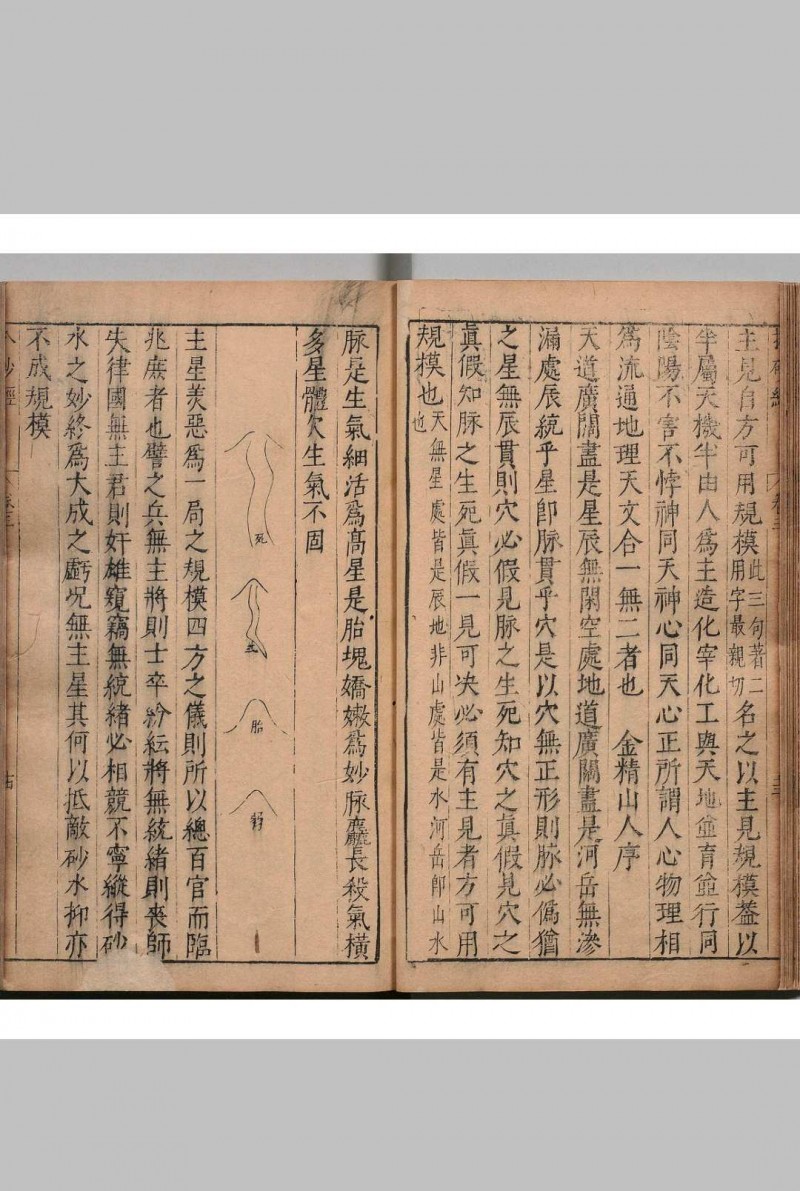 主見自方可用規模此三句著二用字最親切名之以主見規模葢以
半屬天機半由人爲主造化宰化工與天地並育並行同
陰陽不害不悖神同天神心同天心正所謂人心物理相
爲流通地理天文合一無二者也 金精山人序
天道廣闊盡是星辰無閑空處地道廣闊盡是河岳無滲
漏處辰統乎星卽脉貫乎穴是以穴無正形則脉必僞猶
之星無辰貫則穴必假見脉之生死知穴之眞假見穴之
眞假知脉之生死眞假一見可决必須有主見者方可用
規模也天無星處皆是辰地非山處皆是水河岳卽山水也
脉是生氣細活爲高星是胎塊嬌嫩爲妙脉麤長殺氣橫
多星體欠生氣不固
死
生
胎
主星美惡爲一局之規模四方之儀則所以總百官而臨
兆庶者也譬之兵無主將則士卒紛紜將無統緖則喪師
失律國無主君則奸雄窺竊無統緖必相競不寧縱得砂
水之妙終爲大成之虧况無主星其何以抵敵砂水抑亦
不成規模